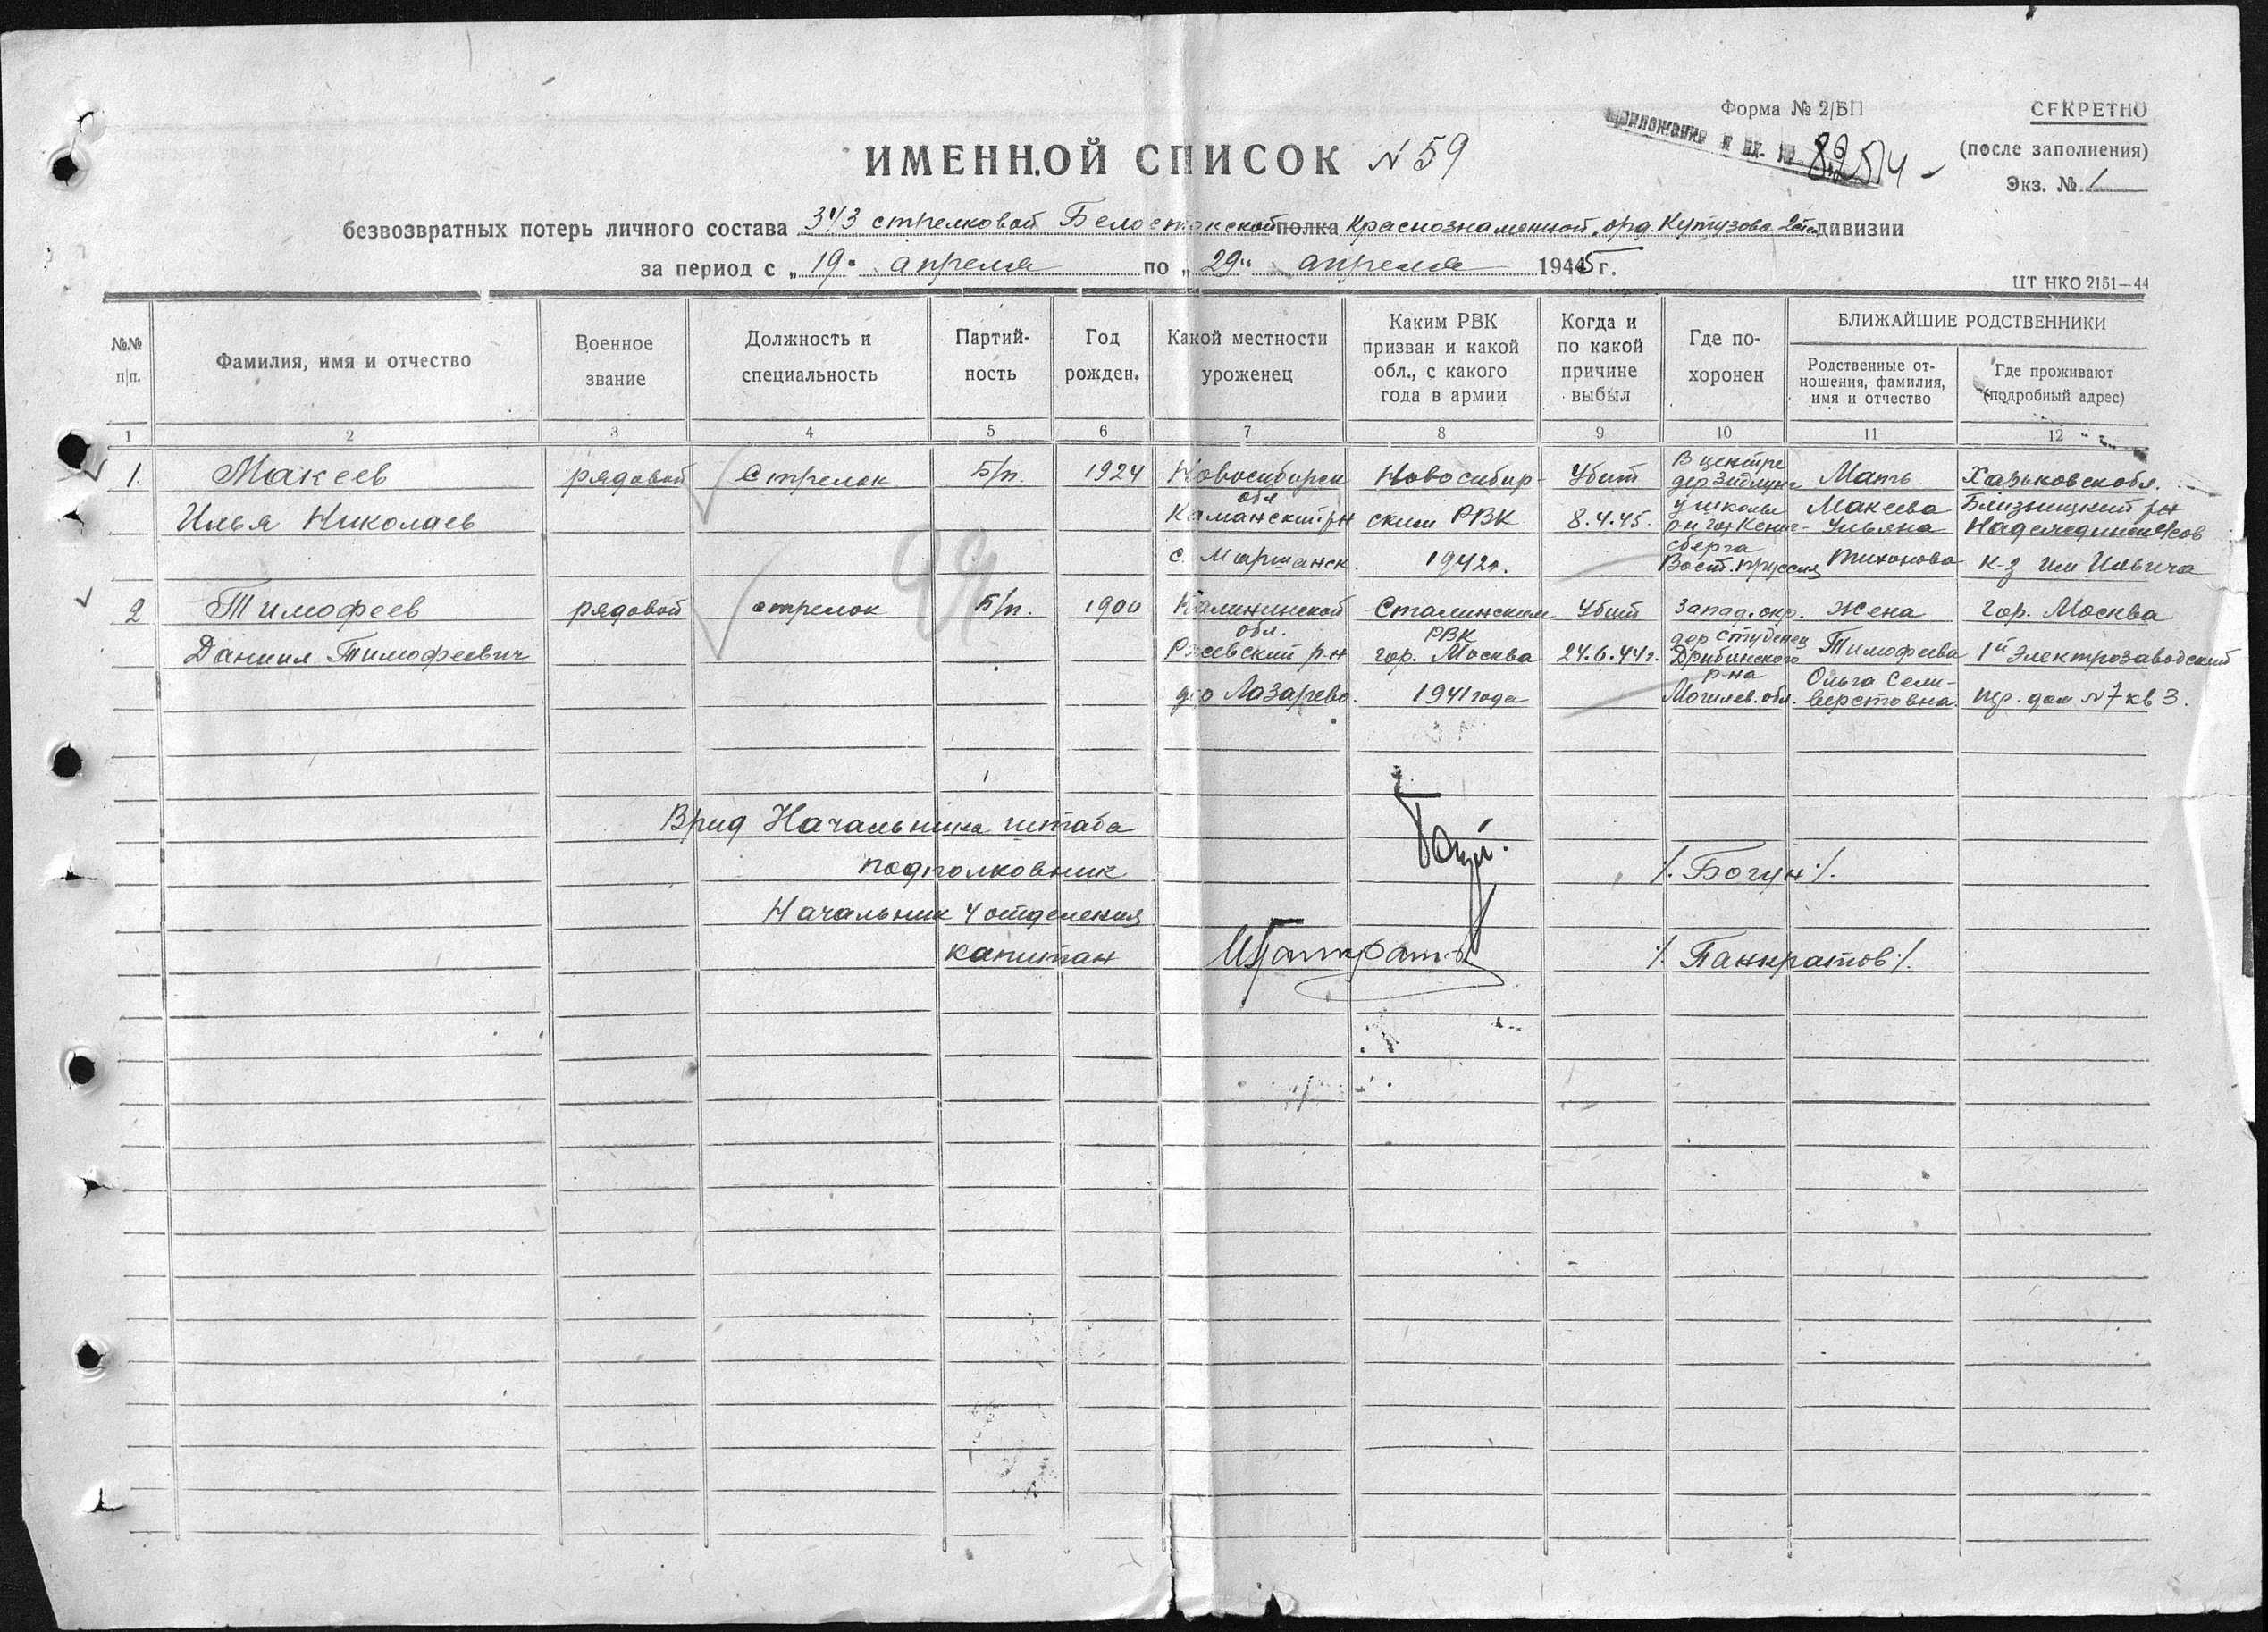 Форма № 2/БП
СЕКРЕТНО
приложение к вх. №
(после заполнения)
Экз. № 1
ИМЕННОЙ СПИСОК N 59
безвозвратных потерь личного состава 343 стрелковой Белостокской полка Краснознаменной, орд. Кутузова 2 ст. дивизии
за период с „19" апреля по „29" апреля 1945 г.
ЦТ НКО 2151—44
№№ п/п.
Фамилия, имя и отчество
Военное звание
Должность и специальность
Партий- ность
Год рожден.
Какой местности уроженец
Каким РВК призван и какой обл., с какого года в армии
Когда и по какой причине выбыл
Где по- хоронен
БЛИЖАЙШИЕ РОДСТВЕННИКИ
Родственные от- ношения, фамилия, имя и отчество
Где проживают (подробный адрес)
1 2 3 4 5 6 7 8 9 10 11 12
1. Макеев рядовой Стрелок Б/п. 1924 Новосибирск Новосибир- Убит В центре дер Мать Харьковскобл.
Илья Николаев обл Каманский р-н ским РВК 8.4.45. у школы р-н гор Кениг- Макеева Ульяна Близницкий р-н
с. Маршанск. 1942г. сберга Вост. Пруссия Тихоновна к-з им Ильича
2 Тимофеев рядовой стрелок Б/п. 1900 Калининской Сталинским Убит Запад. окр. Жена гор. Москва
Даниил Тимофеевич обл. Ржевский р-н РВК гор. Москва 24.6.44г. дер Студенец Дрибинского Тимофеева 1й Электрозаводский
д-о Лазарево. 1941 года р-на Могилев. обл. Ольга Сели- верстовна. пер. дом N 7 кв 3.
Врид Начальника штаба
подполковник /. Богун ./.
Начальник 4 отделения
капитан /. Панкратов ./.